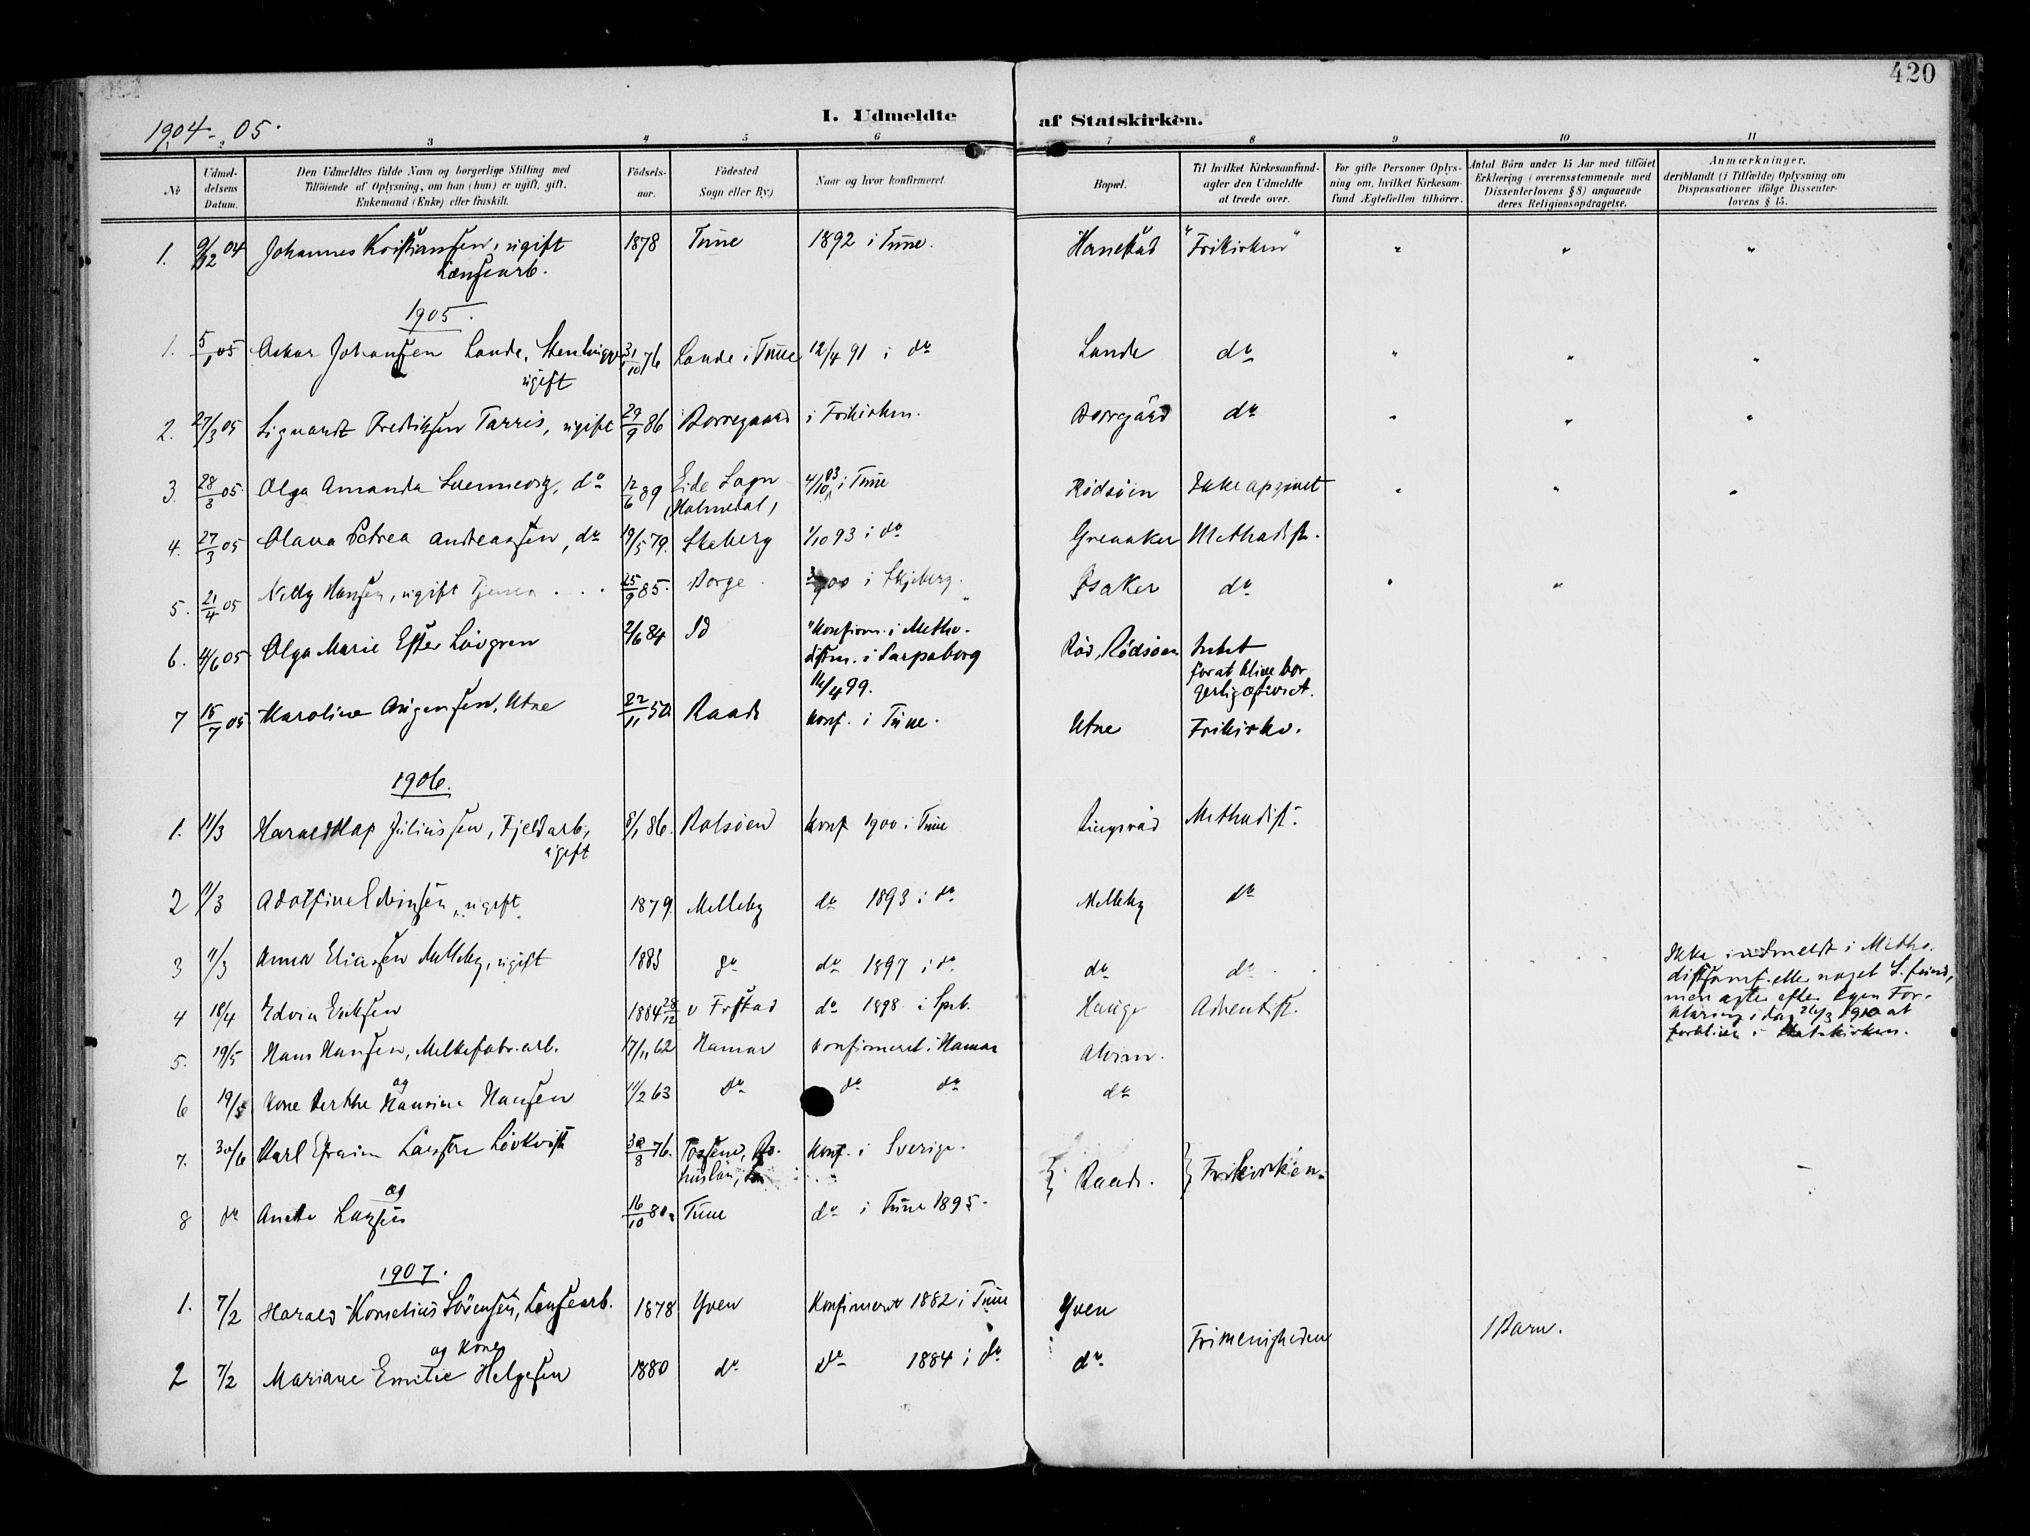 420
1904-05.
I. Udmeldte af Statskirken.
3 4 5 6 7 8 9 10 11
No
Udmeldelsens Datum.
Den Udmeldtes fulde Navn og borgerlige Stilling med Tilföiende af Oplysning, om han (hun) er ugift, gift, Enkemand (Enke) eller fraskilt.
Födselsaar.
Födested Sogn eller By.)
Naar og hvor konfirmeret.
Bopæl.
Til hvilket Kirkesamfund agter den Udmeldte at træde over.
For gifte Personer Oplysning om, hvilket Kirkesamfund Ægtefællen tilhörer.
Antal Börn under 15 Aar med tilföiet Erklæring (overensstemmende med Dissenterlovens § 8) angaaende deres Religionsopdragelse.
Anmærkninger, deriblandt (i Tilfælde) Oplysning om Dispensationer ifölge Dissenterlovens § 15.
1. 9/12 04 Johannes Kristiansen, ugift 1878 Tune 1892 i Tune. Hanestad "Frikirken" " " "
Lænsearb.
1905.
1. 5/1 05 Oskar Johansen Lande, Stenhugger 31/10 76 Lande i Tune 12/4 91 i do Lande do " " "
ugift
2. 27/3 05 Sigvardt Fredriksen Tarris, ugift 29/9 86 Borregaard i Frikirken. Borregård do " " "
3. 28/3 05 Olga Amanda, do 12/6 89 Eide Sogn 4/10 03 i Tune Rödsöen Ikke opgivet " " "
(Holmedal)
4. 27/3 05 Olava Petrea Andreassen, do 19/5 79. Skeberg 1/10 93 i do Greaaker Methodist.
5. 21/4 05 Nelly Hansen, ugift 25/9 85. Borge. 00 i Skjeberg. Isaker do " "
6. 4/6 05 Olga Marie Ester Lövgren 2/6 84 Id "Konfirm. i Metho- Röd, Rödsöen Intet
distm. i Sarpsborg for at blive bor-
16/4 99. gerlig gtviet.
7 15/7 05 Karoline Augensen, Utne 22/11 50. Raade konf. i Tune. Utne Frikirke.
1906.
1. 11/3 Harald Juliussen, Fjeldarb, 8/1 86. Rolsöen konf 1900 i Tune Lingsröd Methodist.
ugift
2 11/3 Adolfine Edvinsen, ugift 1879. Melleby do 1893 i do Melleby do
3 11/3 Anna Eliasen Melleby, ugift 1883 do do 1897 i do do do Ikke indmeldt i Metho-
distsamf. eller noget S. fund,
men agter efter egen For-
klaring i dag 26/3 1910 at
forblive i Statskirken.
4 18/4 Edvin Eriksen 1884 28/12 v Frstad do 1898 i Spb. Hauge Adventist.
5. 19/5 Hans Hansen, Melkefabr. arb. 17/11 62 Hamar konfirmeret i Hamar Alvim.
og
6 19/5 Kone Berthe Hansine Hansen 11/2 63 do do do do
7. 30/6 Karl Efraim Larsson Lövkvist 30/8 76. Tossene, Bo- Konf. i Sverige. } Raade. } Frikirken.
og huslän,
8 do Anette Larsen 16/10 80. Tune do i Tune 1895.
1907.
1. 7/2 Harald Kornelius Sörensen, Lensearb. 1878 Yven Konfirmeret 1882 i Tune Yven
og Kone Frimenigheden 1 Barn.
2 7/2 Mariane Emilie Helgesen 1880 do do 1884 i do do